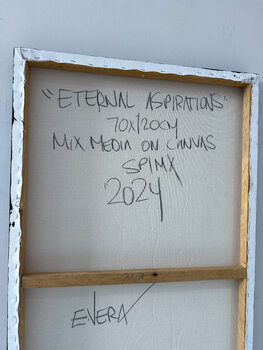 "ETERNAL ASPIRATIONS"
70x120cm
MIX MEDIA ON CANVAS
SPIMX
2024
ENERA